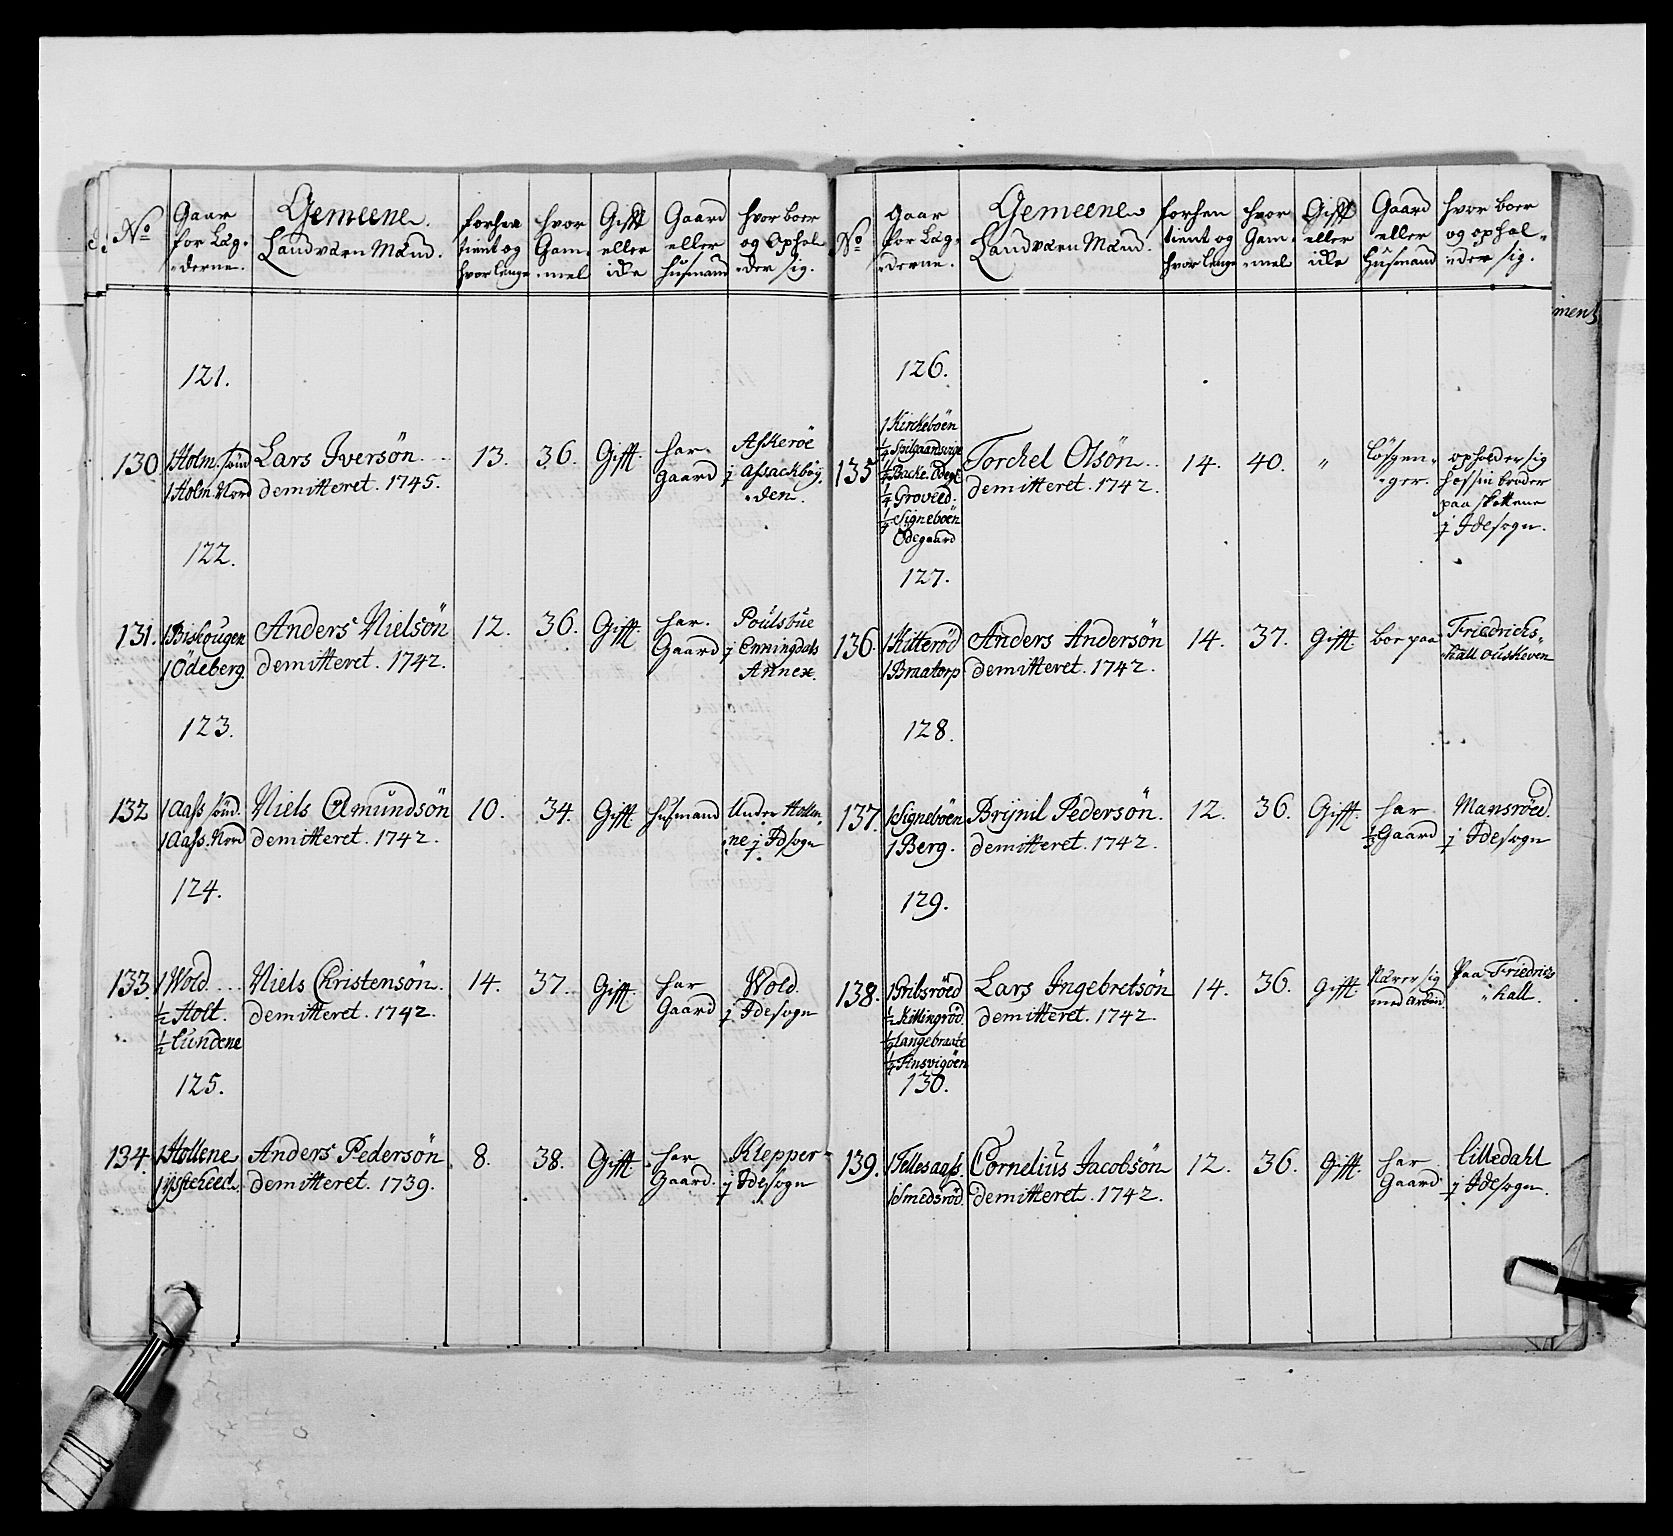 No
Gaar
for Læg-
derne.
Gemeene
Landværn Mænd.
forhen
tient og
hvor Længe
hvor
Gam-
mel
Gifft
eller
icke
Gaard
eller
husmand
hvor boer
og ophol-
der sig.
121.
130
1 Holm. Sönd
1 Holm Nord
Lars Iversön
demitteret. 1745.
13.
36.
Gifft
har
Gaard
Askeröe
j
den.
122.
131.
1 Biskougen
1 Ödeberg
Anders Nielsön
demitteret. 1742.
12.
36.
Gifft
har
Gaard
Poulsbue
j Enningdals
Annex.
123.
132
1 Aass Sönd.
1 Aass. Nord
Niels Amundsön
demitteret. 1742.
10.
34.
Gifft
husmand
Under Hollen-
ne j Idsogn
124.
133.
1 Wold
1/2 Holt.
1/2 Lundene
Niels Christensön.
demitteret. 1742.
14.
37.
Gifft
har
Gaard
Wold.
j Idesogn
125.
134.
1 Hollene
Anders Pedersön
demitteret. 1739.
8.
38.
Gifft
har
Gaard.
Klepper
j Idesogn
No
Gaar
for Læg-
derne.
Gemeene
Landværn Mænd.
forhen
tient og
hvor Længe
hvor
Gam-
mel
Gifft
eller
icke
Gaard
eller
Husmand
hvor boer
og ophol-
der sig.
ment
126.
135
1 Kirckeböen
1/4 Groveed.
1/4 Signeböen
Ödegaard
Torckel Olsön
demitteret. 1742.
14.
40.
"
Lösgen-
ger.
opholder sig
hos sin broder
paa Skottene
j Idesogn.
127.
136.
1 Katteröd
1 Braatorp
Anders Andersön
demitteret. 1742.
14.
37.
Gifft
boe paa
Friedrichs-
hall
128.
137.
1 Signeböen
1 Berg.
Brynil Pedersön.
demitteret. 1742.
12.
36.
Gifft
har
1/3 Gaard
Mansröed.
j Idesogn
129.
138.
1 Pribsröed
1/2 Killingröd
1/2 Langebraate
Lars Ingebretsön
demitteret. 1742.
14.
36.
Gifft
Nærer sig
med arbeid
Paa Friedrichs
hall.
130.
139.
1 Tellesaass
1 Smedsröd.
Cornelius Jacobsön
demitteret. 1742.
12.
36.
Gifft.
har
Gaard
Lilledahl
j Idesogn.